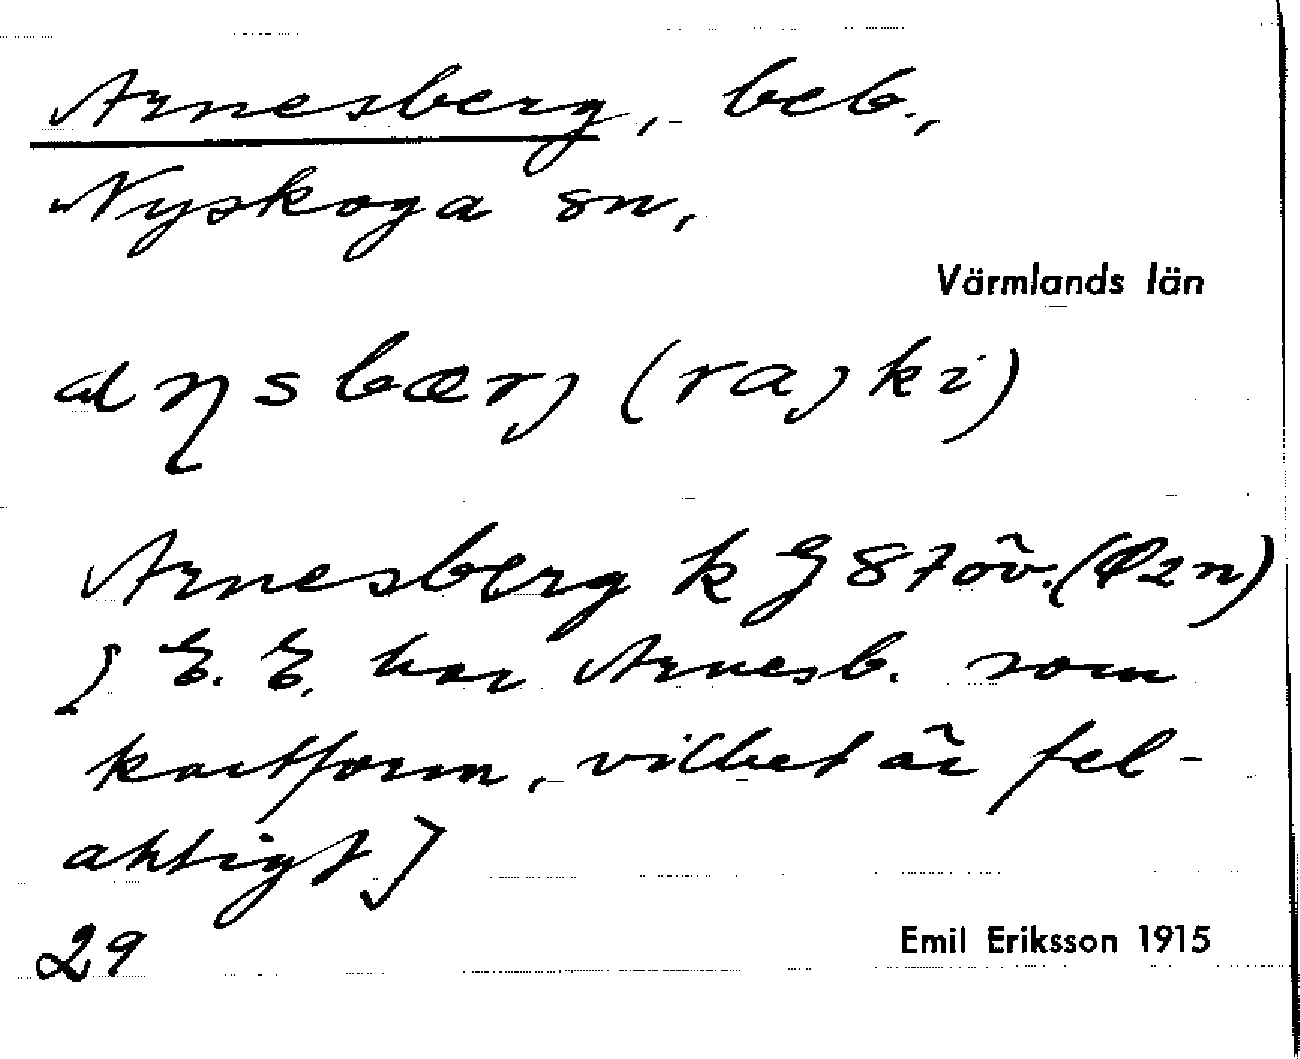 Arnesberg, beb.,
Nyskoga sn,
Värmlands län
Arnesberg k G 87 öv.
[E. E. har Arnesb. som
kartform, vilket är fel-
aktigt]
29
Emil Eriksson 1915